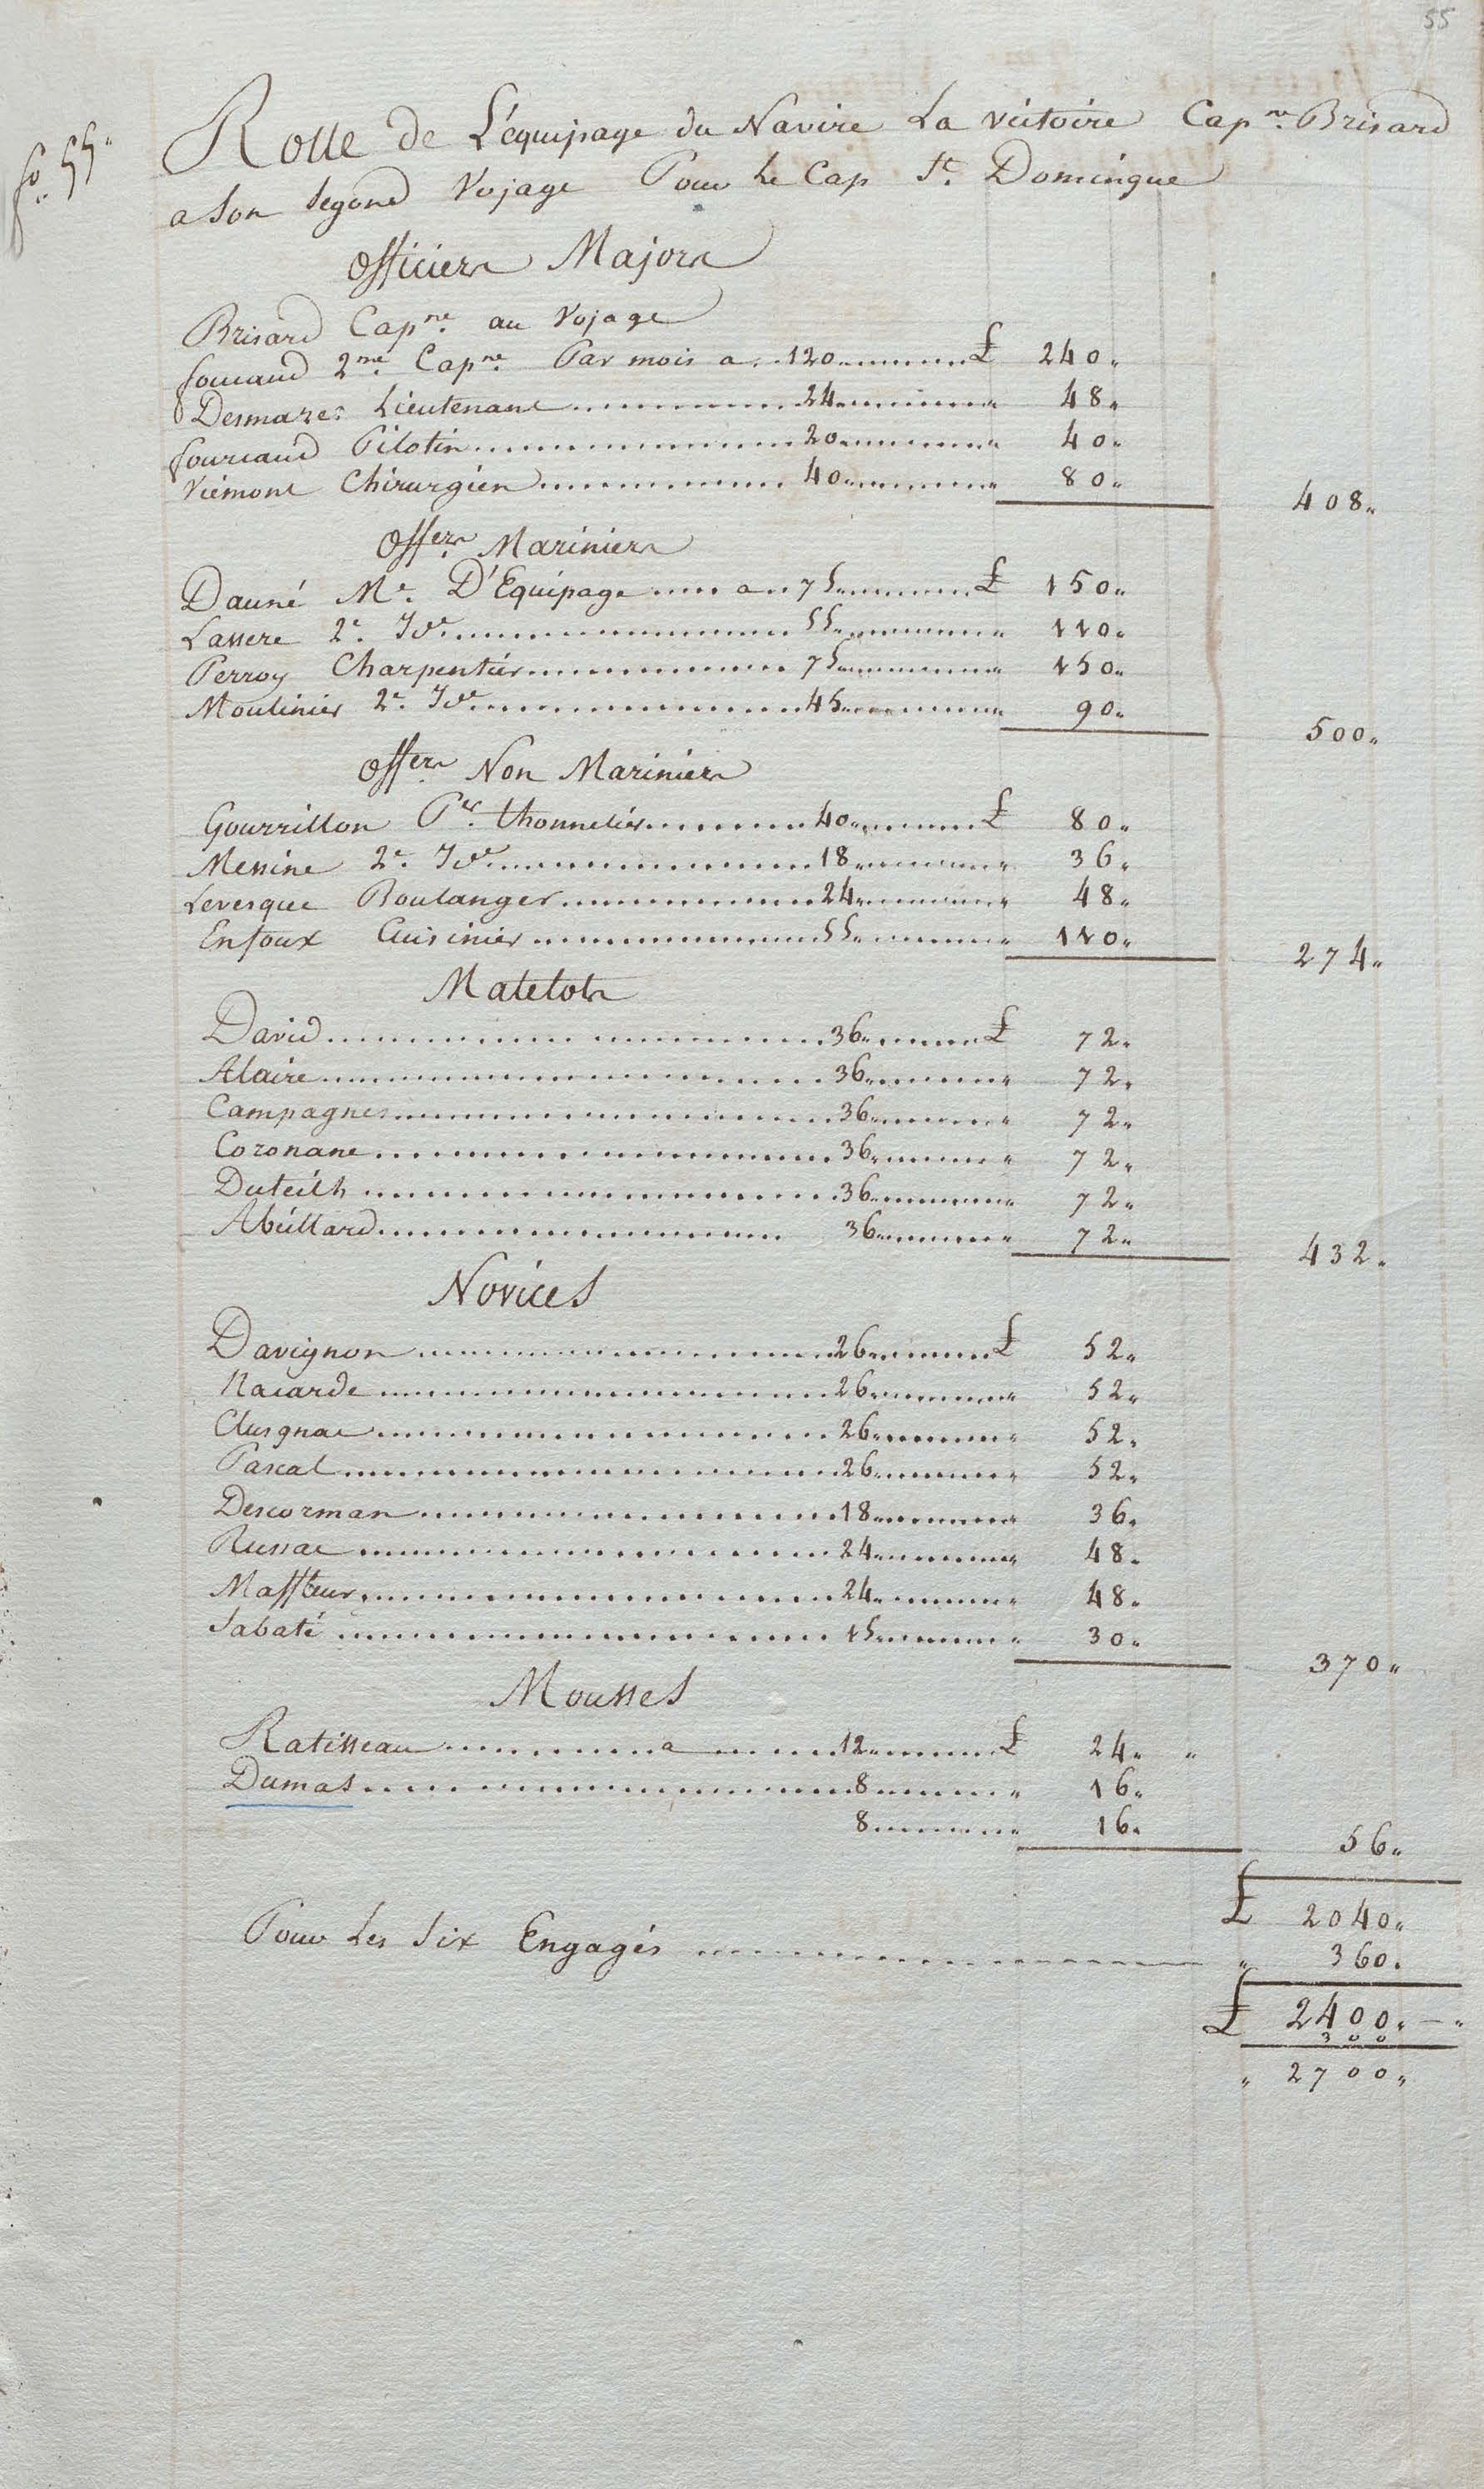 55
fo. 55.
Rolle de L'équipage du Navire La victoire Capne. Brisard
a Son Segond Vojage Pour Le Cap St. Domingue
Officiers Majors
Brisard Capne. au Vojage
fourcaud 2me. Capne. Par mois a 120 £ 240
Desmazes Lieutenant 24 48
fourcaud Pilotin 20 40
Viemont Chirurgien 40 80
408
Offers. Mariniers
Dauné Me. D'Equipage a 75 £ 150
Lassere 2e. Ide 55 110
Perroy Charpentier 75 150
Moulinier 2e. Ide 45 90
500
Offers. Non Mariniers
Gourrillon Per. thonnelier 40 £ 80
Messine 2e. Ide 18 36
Levesque Boulanger 24 48
Enfoux Cuisinier 55 110
274
Matelots
David 36 £ 72
Alaire 36 72
Campagnes 36 72
Coronane 36 72
Duteilh 36 72
Abeillard 36 72
432
Novices
Davignon 26 £ 52
Nacarde 26 52
Clusgnac 26 52
Pascal 26 52
Descorman 18 36
Russac 24 48
Maffteur 24 48
Sabaté 15 30
370
Mousses
Ratisseau a 12 £ 24
Dumas 8 16
8 16
56
£ 2040
Pour Les Six Engagés 360
£ 2400
300
2700